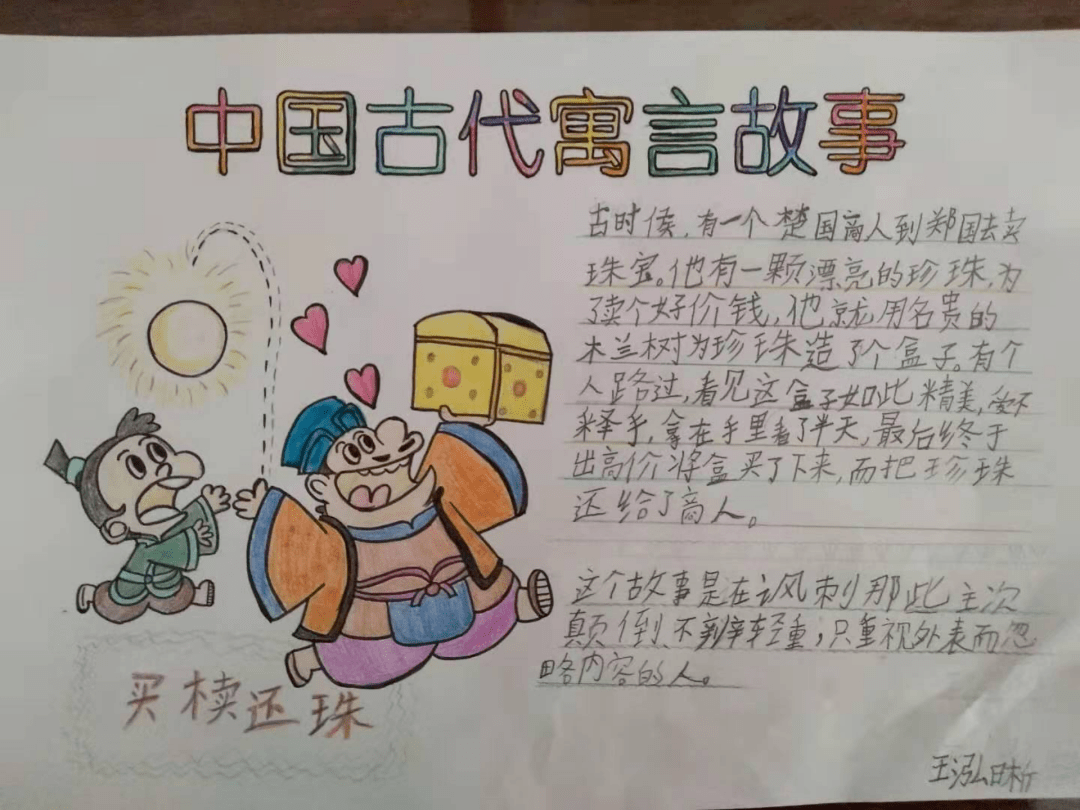 中国古代寓言故事
古时候，有一个楚国商人到郑国去卖
珠宝。他有一颗漂亮的珍珠，为
了卖个好价钱，他就用名贵的
木兰树为珍珠造了个盒子。有个
人路过，看见这盒子如此精美，爱不
释手，拿在手里看了半天，最后终于
出高价将盒买了下来，而把珍珠
还给了商人。
这个故事是在讽刺那些主次
颠倒、不辨轻重，只重视外表而忽
略内容的人。
买椟还珠
王泓晰